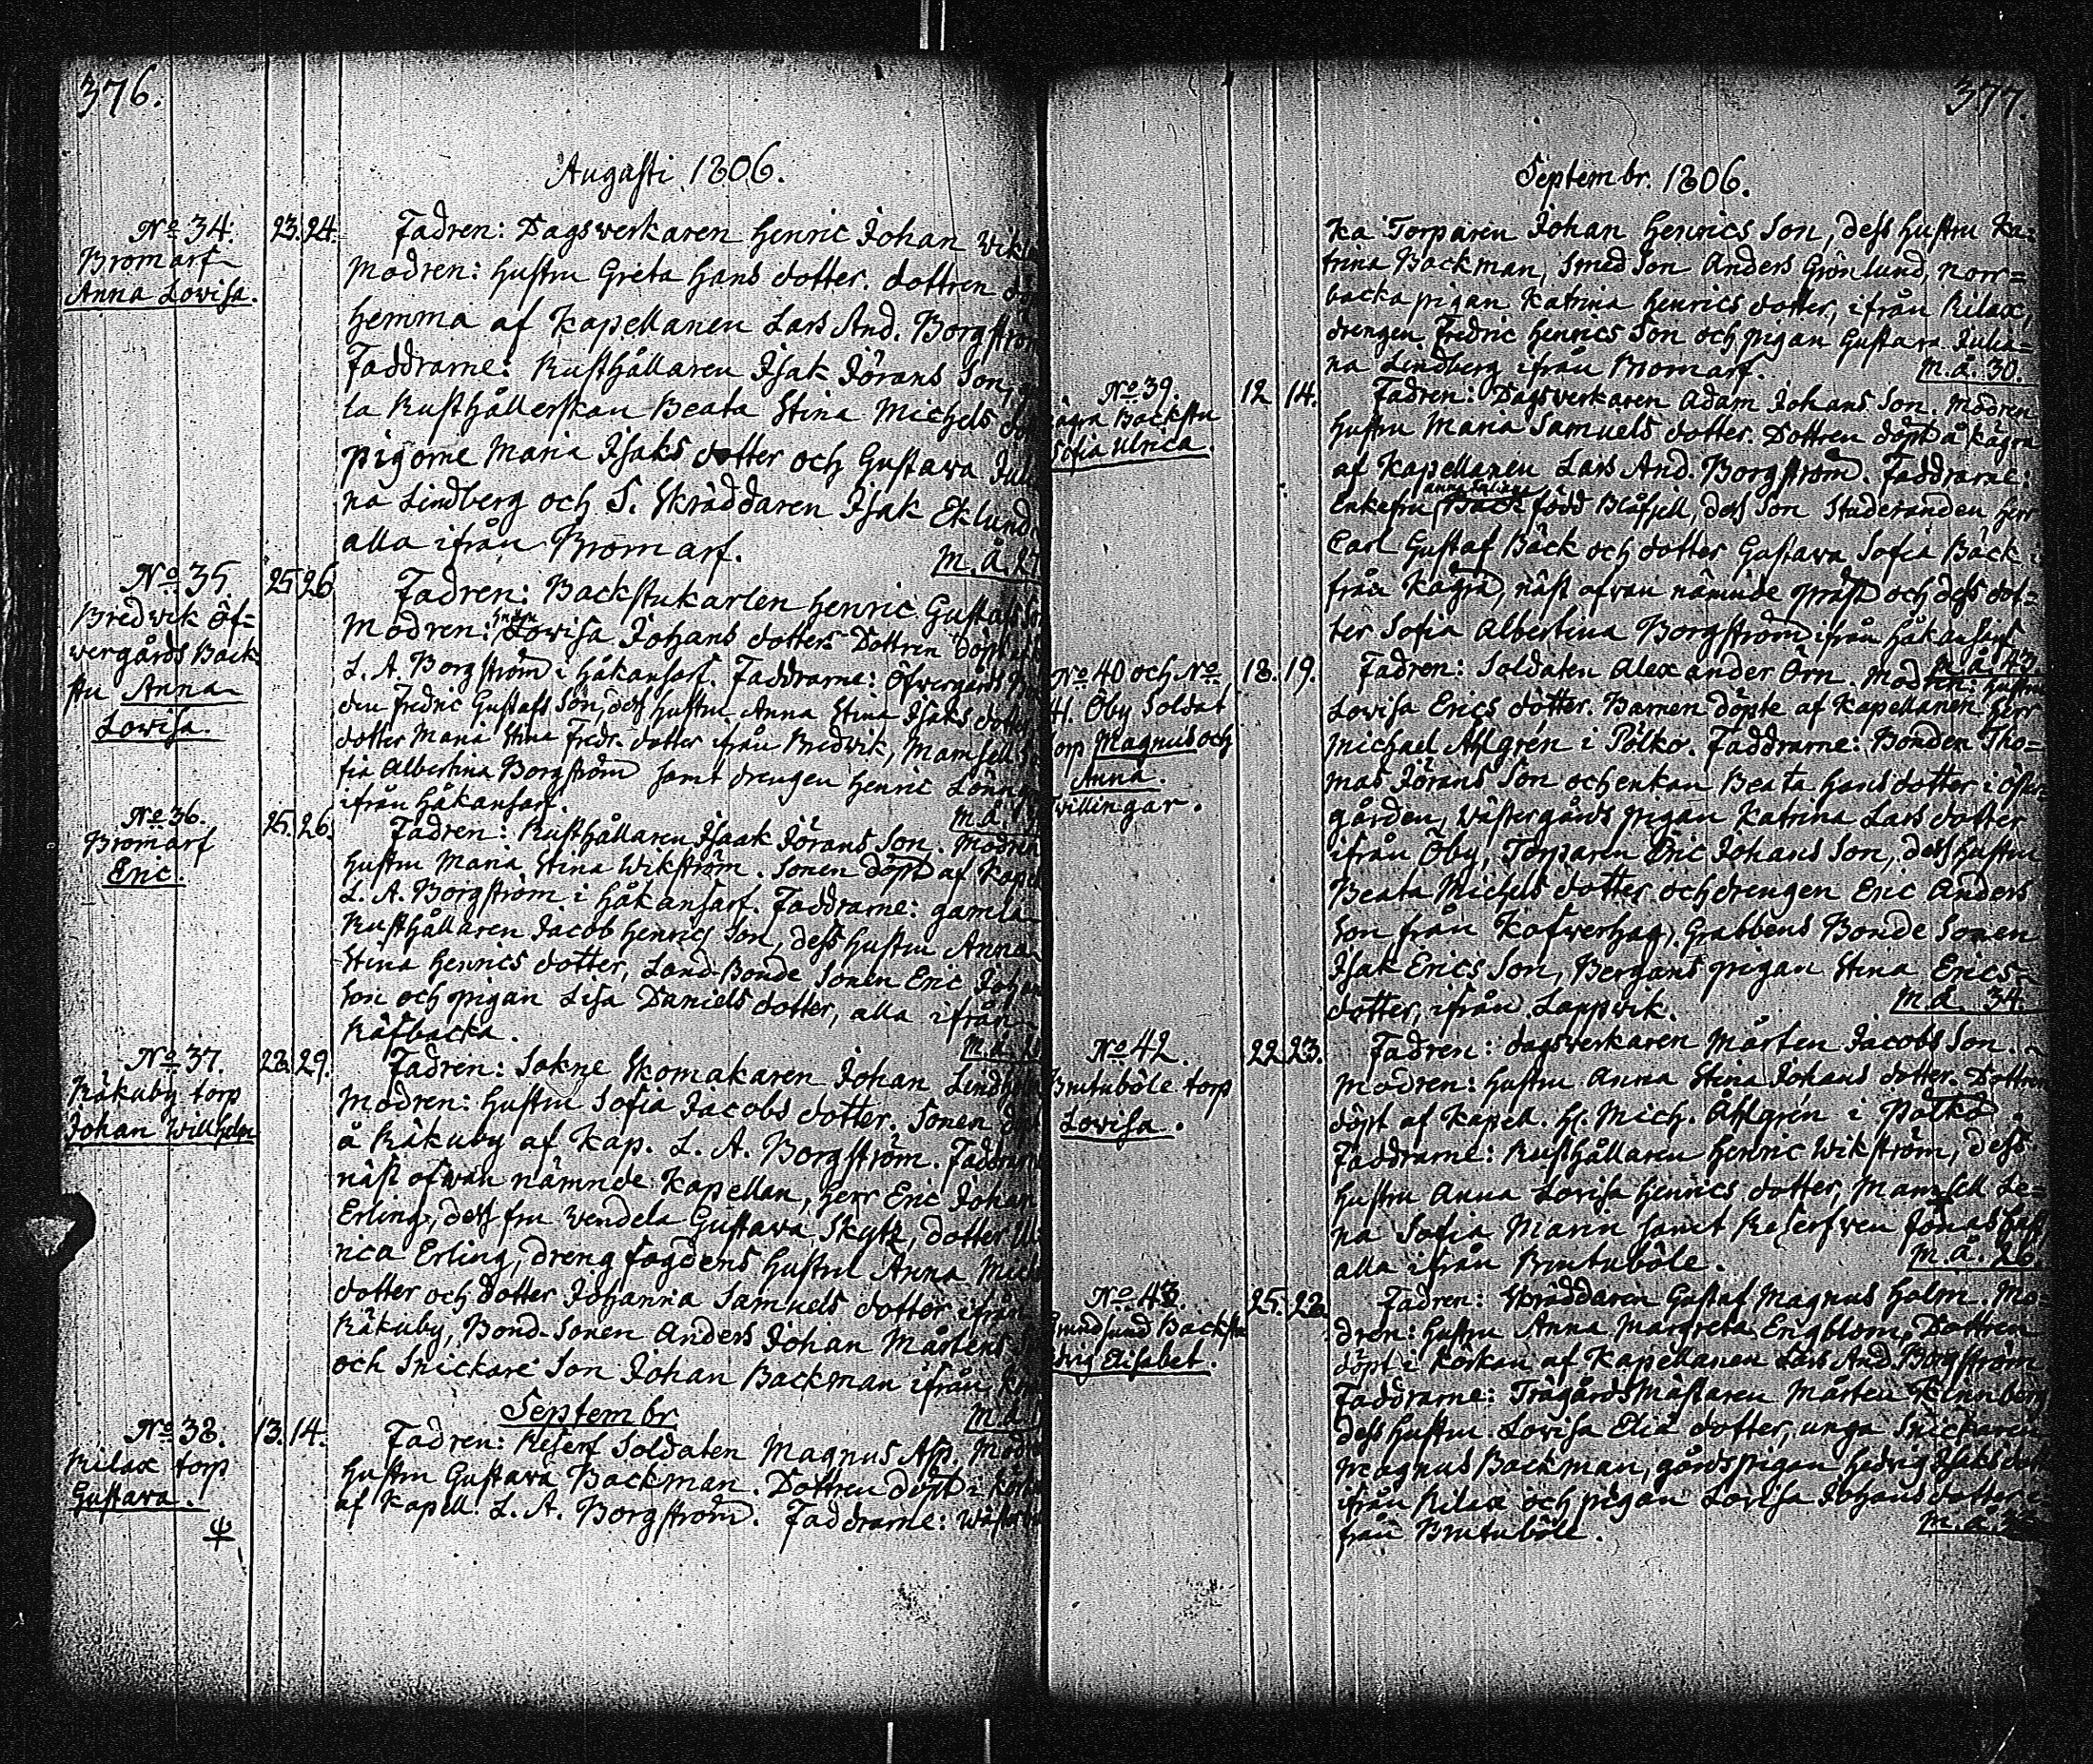 376.
Augusti 1806.
No 34. 23. 24. Fadren: Dagsverkaren Henric Johan
Bromarf Modren: hustru Greta Hans dotter. dottren
Anna Lovisa.
hemma af Kapellanen Lars And. Borgström
Faddrarne: Rusthållaren Isak Jörans Son,
la Rusthållerskan Beata Stina Michels
pigorne Maria Isaks dotter och Gustava
na Lindberg och S. Skräddaren Isak Eklund
alla ifrån Bromarf. M. å. 27
No 35. 25 26 Fadren: Backstukarlen Henric Gustafs
Bredvik öf= Modren: hustru Lovisa Johans dotter. Dottren döpt
vergårds Back L. A. Borgström i Håkansarf. Faddrarne: Öfvergårds
stu Anna den Fredric Gustafs Son, dess hustru Anna Stina Isaks dotter
Lovisa. dotter Maria Stina Fredr. dotter ifrån Bredvik, Mamsell
fia Albertina Borgström samt drengen Henric
ifrån Håkansarf. M. å.
No 36. 25. 26. Fadren: Rusthållaren Isaak Jörans Son. Modren
Bromarf hustru Maria Stina Wikström. Sonen döpt af Kapell
Eric. L. A. Borgström i Håkansarf. Faddrarne: gamla
Rusthållaren Jacob Henrics Son, dess hustru Anna
Stina Henrics dotter, Land-Bonde Sonen Eric Johan
Son och pigan Lisa Daniels dotter, alla ifrån
Räfbacka. M. å.
No 37. 28. 29. Fadren: Sokne Skomakaren Johan
Råkuby torp Modren: hustru Sofia Jacobs dotter. Sonen
Johan Wilhelm å Råkuby af Kap. L. A. Borgström.
näst ofvan nämnde Kapellan, herr Eric Johan
Erling, dess fru Vendela Gustava Skytz, dotter Ul
rica Erling, dreng fogdens hustru Anna
dotter och dotter Johanna Samuels dotter ifrån
Råkuby, Bond-Sonen Anders Johan Mårtens
och Snickare Son Johan Backman ifrån
Septembr M. å.
No 38. 13. 14. Fadren: Reserf Soldaten Magnus Asp.
Rilax torp hustru Gustava Backman. Dottren döpt i
Gustava. af Kapell. L. A. Borgström. Faddrarne:
377.
Septembr. 1806.
ka Torparen Johan Henrics Son, dess hustru Ka=
trina Backman, Smed Son Anders Grönlund, Norr=
backa pigan Katrina Henrics dotter, ifrån Rilax,
drengen Fredric Henrics Son och pigan Gustava Julia=
na Lindberg ifrån Bromarf. M. å. 30.
No 39. 12 14. Fadren: Dagsverkaren Adam Johans Son. Modren
Backstu hustru Maria Samuels dotter. Dottren döpt å Kägra
Sofia Ulrica. af Kapellanen Lars And. Borgström. Faddrarne:
Enkefru Bäck född Blåfjell, dess Son Studeranden herr
Carl Gustaf Bäck och dotter Gustava Sofia Bäck i
från Kägra, näst ofvan nämnde präst och dess dot=
ter Sofia Albertina Borgström ifrån Håkansarf.
M. å. 43
No 40 och No 18. 19. Fadren: Soldaten Alexander Örn. Modren: hustru
41. Öby Soldat Lovisa Erics dotter. Barnen döpte af Kapellanen herr
torp Magnus och Michael Ahlgrén i Pölkö. Faddrarne: Bonden Tho=
Anna. mas Jörans Son och enkan Beata Hans dotter i
Tvillingar. gården, Wästergårds pigan Katrina Lars dotter
ifrån Öby, Torparen Eric Johans Son, dess hustru
Beata Michels dotter och drengen Eric Anders
Son från Kofverhag, Grabbens Bonde Sonen
Isak Erics Son, Bergans pigan Stina Erics=
dotter, ifrån Lappvik. M. å. 34.
No 42. 22 23. Fadren: dagsverkaren Mårten Jacobs Son.
Brutuböle torp Modren: hustru Anna Stina Johans dotter. Dottren
Lovisa. döpt af Kapell. H. Mich. Åhlgrén i Pölkö
Faddrarne: Rusthållaren Henric Wikström, dess
hustru Anna Lovisa Henrics dotter, Mamsell Le=
na Sofia Marin samt Reserfven Jonas
alla ifrån Brutuböle. M. å. 26.
No 43. 25. 28. Fadren: Skräddaren Gustaf Magnus Holm. Mo=
Backstu dren: hustru Anna Margreta Engblom. Dottren
Elisabet. döpt i kyrkan af Kapellanen Lars And. Borgström
Faddrarne: Trägårds Mästaren Mårten
dess hustru Lovisa Eliä dotter, unga Snickaren
Magnus Backman, gårds pigan Hedvig Isaks
ifrån Rilax och pigan Lovisa Johans dotter i=
från Brutuböle. M. å.